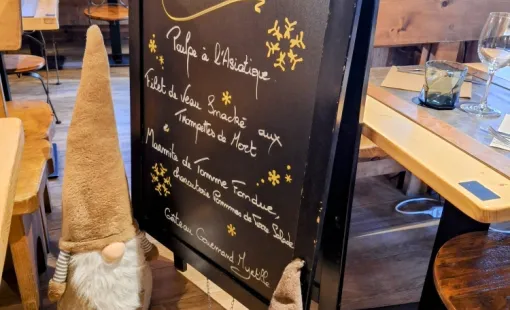 Poulpe à l'Asiatique
Filet de Veau Snacké aux
Trompettes de Mort
Marmite de Tomme Fondue,
charcuterie Pommes de Terre Salade
Gâteau Gourmand Myrtille